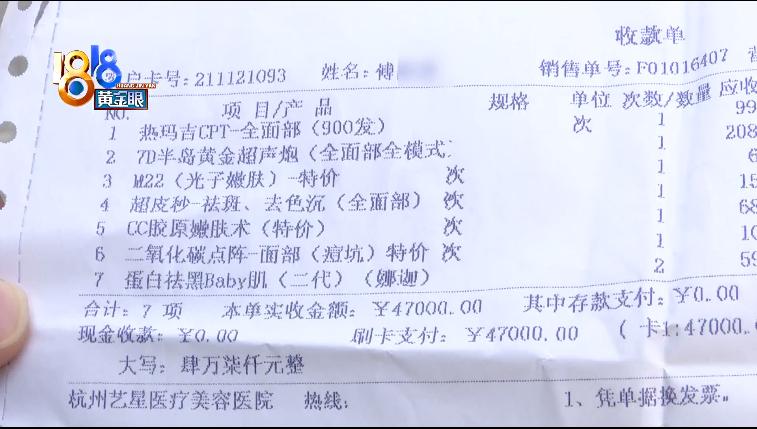 收款单
1818
黄金眼
户卡号:211121093 姓名:傅 销售单号:F01016407
NO. 项目/产品 规格 单位 次数/数量 应收
1 热玛吉CPT-全面部（900发） 次 1 99
2 7D半岛黄金超声炮（全面部全模式） 1 208
3 M22（光子嫩肤）-特价 次 1 6
4 超皮秒-祛斑、去色沉（全面部） 次 1 15
5 CC胶原嫩肤术（特价） 次 1 68
6 二氧化碳点阵-面部（痘坑）特价 次 1 10
7 蛋白祛黑Baby肌（二代）（娜迦） 2 59
合计: 7 项 本单实收金额: ￥47000.00 其中存款支付: ￥0.00
现金收款: ￥0.00 刷卡支付: ￥47000.00 ( 卡1:47000.
大写: 肆万柒仟元整
杭州艺星医疗美容医院 热线: 1、凭单据换发票。